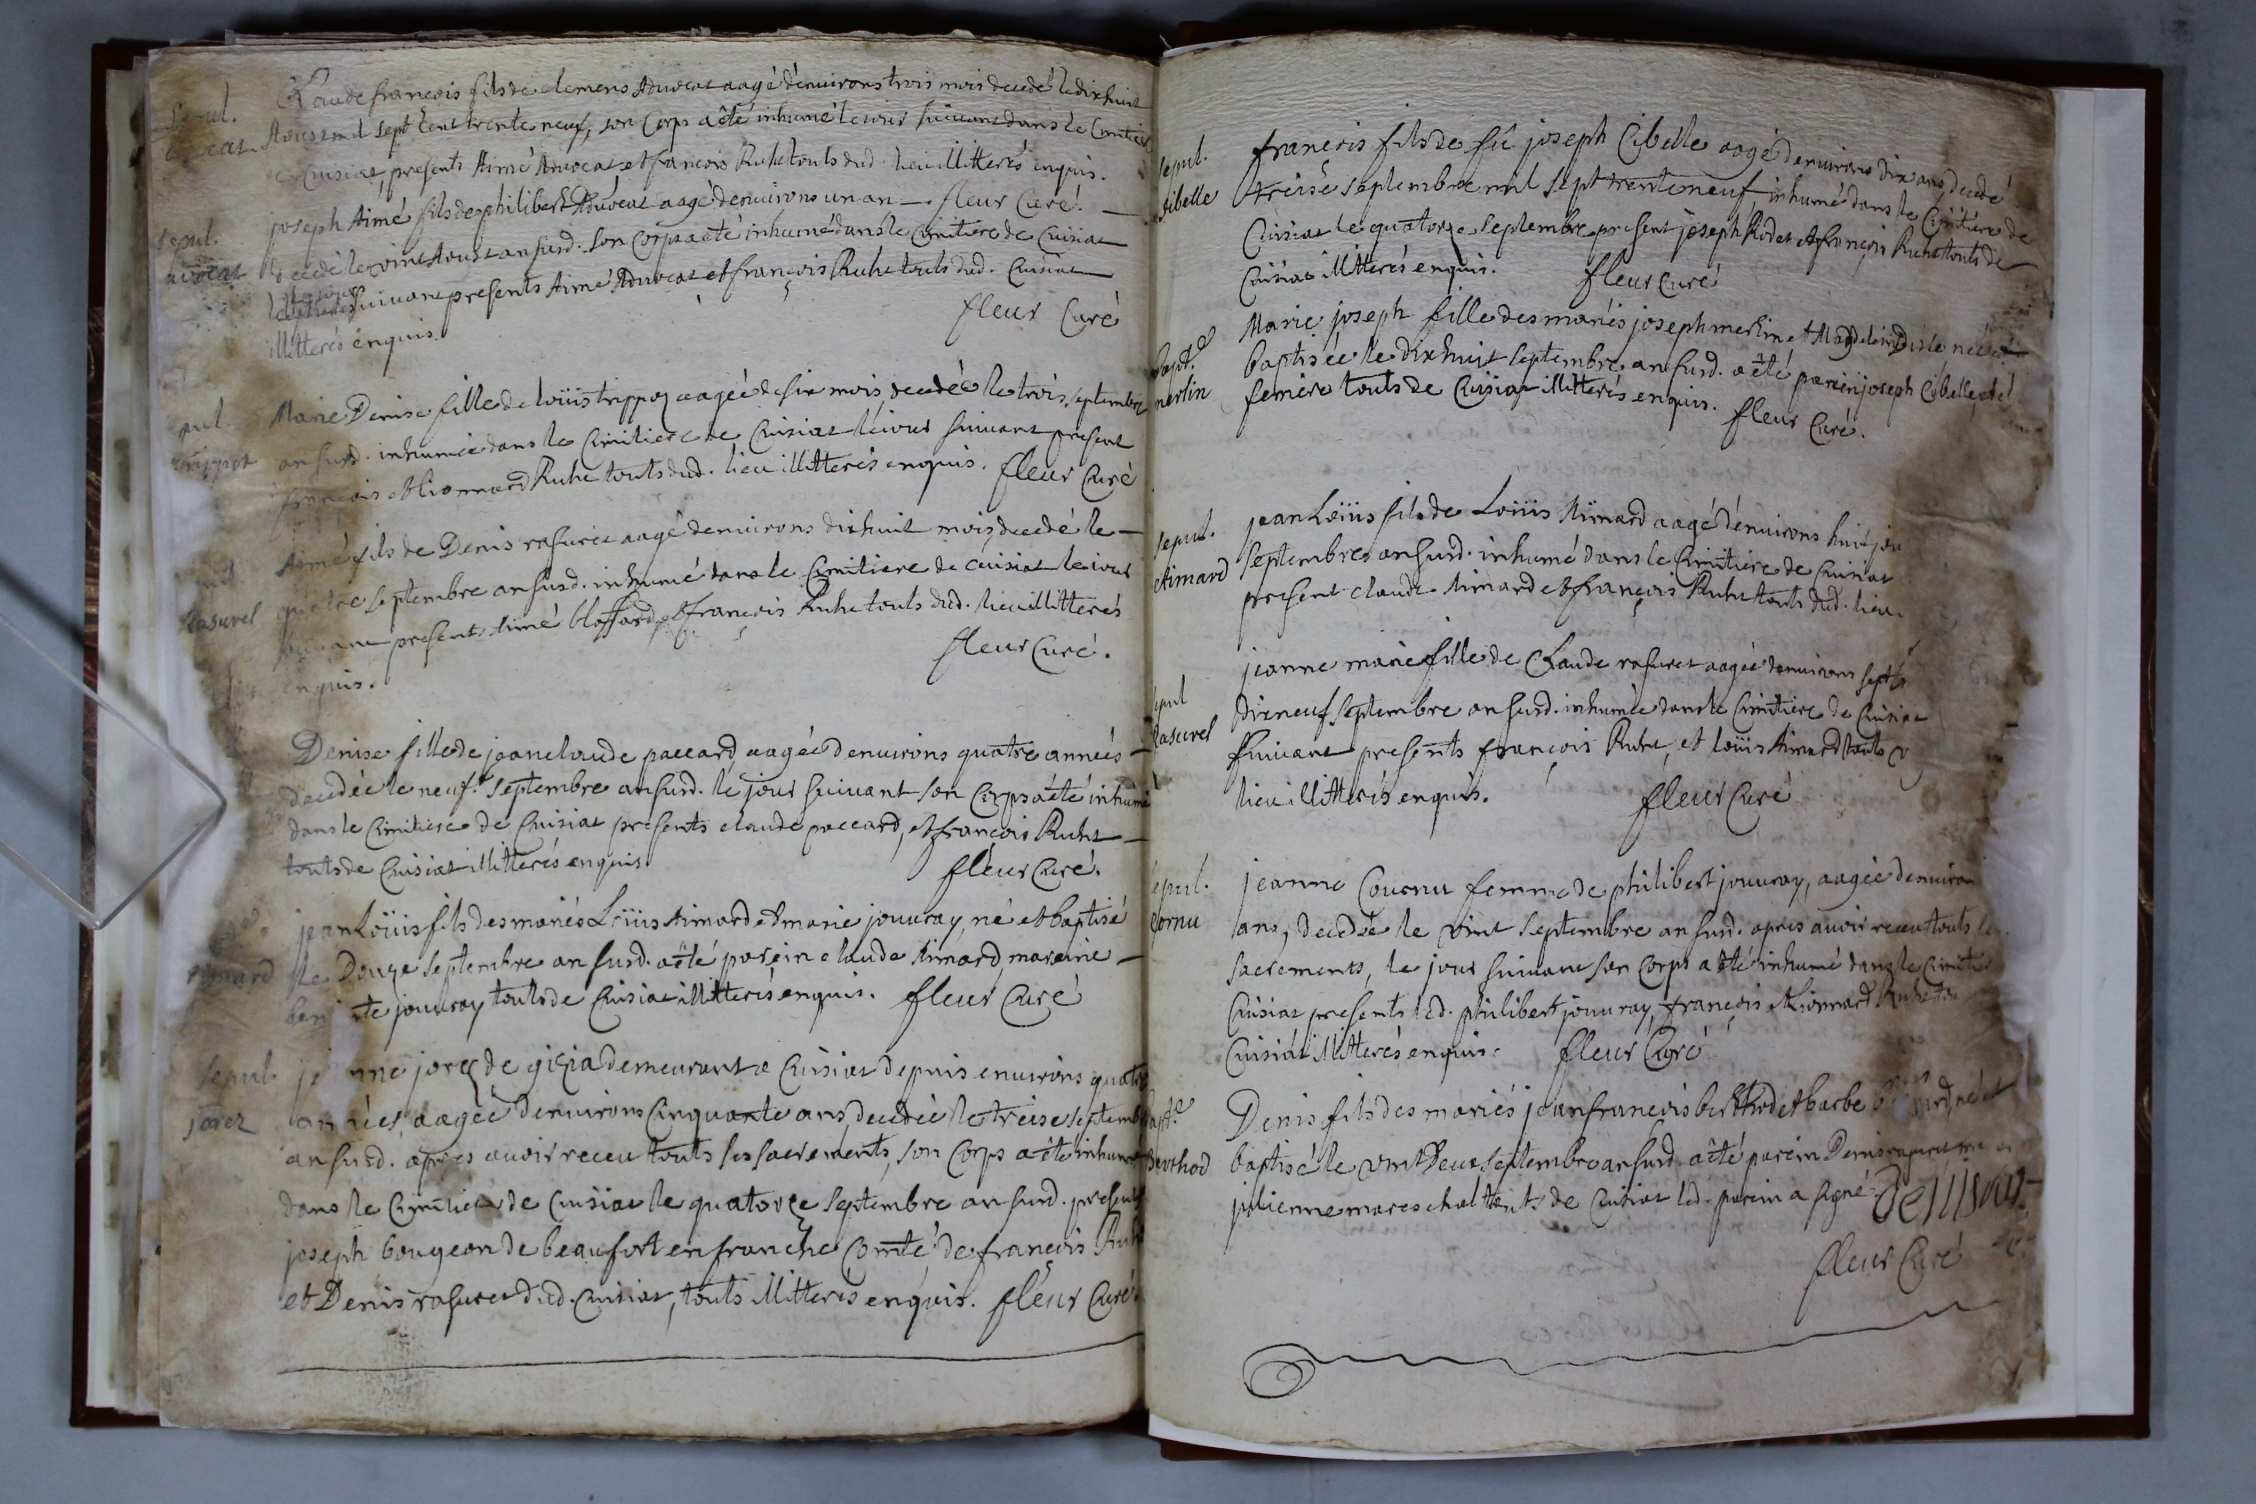 Sepul.
Claude francois fils de clemens Aduocat aagé d'enuirons trois mois decedé le dixhuit
Aoust mil sept cent trente neuf, son corps a êté inhumé le iour suiuant dans le Cimitiere
de Cuisiat, presents Aimé Aduocat et francois Ruhet touts dud. lieu illitterés enquis.
fleur Curé.
Sepul.
aduocat
joseph Aimé fils de philibert Aduocat aagé d'enuirons un an
decedé le vint Aoust an susd. son Corps a eté inhumé dans le Cimitiere de Cuisiat
suiuant presents Aimé Aduocat et françois Ruhet touts dud. Cuisiat
illitterés enquis.
fleur Curé
trippoz
Marie Denise fille de loüis trippoz aagée de six mois decedée le trois septembre
an susd. inhumée dans le Cimitiere de Cuisiat le iour suiuant present
françois et lionnard Ruhet touts dud. lieu illitterés enquis. fleur Curé
Rasurel
Aimé fils de Denis rasurel aagé denuirons dixhuit mois decedé le
quatre septembre an susd. inhumé dans le Cimitiere de Cuisiat le iour
suiuant presents Aimé bloffard, et françois Ruhet touts dud. lieu illitterés
enquis.
fleur Curé.
Denise fille de jeanclaude paccard aagée denuirons quatre années
decedée le neuf.e septembre an susd. le jour suiuant son Corps a êté inhumé
dans le Cimitiere de Cuisiat presents claude paccard, et françois Ruhet
touts de Cuisiat illitterés enquis
fleur Curé.
Aimard
jean Loüis fils des mariés Loüis Aimard et marie jouuray, né et baptisé
le Douze septembre an susd. a êté parein claude Aimard, mareine
jouuray touts de Cuisiat illitterés enquis. fleur Curé
Sepul.
jorez
jorez de gizia demeurant a Cuisiat depuis enuirons quatre
années, aagée denuirons Cinquante ans, decedée le treise septembre
an susd. apres auoir receu touts ses sacrements, son Corps a êté inhumé
dans le Cimitiere de Cuisiat le quatorze septembre an susd. presents
joseph bougeon de beaufort en franche Comté, de françois Ruhet
et Denis rasurel dud. Cuisiat, touts illitterés enquis. fleur Curé.
Sepul.
Sibelle
françois fils de fû joseph Cibelle aagé denuirons dix ans, decedé
treise septembre mil sept trente neuf, inhumé dans le Cimitiere de
Cuisiat le quatorze septembre present joseph Rodet et françois Ruhet touts de
Cuisiat illitterés enquis. fleur Curé
bapt.e
merlin
Marie joseph fille des mariés joseph merlin et Magdeleine née et
baptisée le dixhuit septembre an susd. a êté parein joseph Cibelle
femere touts de Cuisiat illitterés enquis. fleur Curé.
Sepul.
Aimard
jean Loüis fils de Loüis Aimard aagé d'enuirons huit jou
septembre an susd. inhumé dans le Cimitiere de Cuisiat
present claude Aimard et françois Ruhet touts dud. lieu.
sepul
Rasurel
jeanne marie fille de Claude rasurel aagée denuirons sept
Dixneuf septembre an susd. inhumée dans le Cimitiere de Cuisiat
suiuant presents françois Ruhet, et loüis Aimard touts
lieu illitterés enquis. fleur Curé
sepul.
Cornu
jeanne Cournu femme de philibert jouuray, aagée denuiron
ans, decedée le vint septembre an susd. apres auoir receu touts
sacrements, le jour suiuant son Corps a êté inhumé dans le Cimitie
Cuisiat presents led. philibert jouuray, françois et lionnard Ruhet
Cuisiat illitterés enquis. fleur Curé
bapt.e
Berthod
Denis fils des mariés jeanfrancois berthod et barbe né et
baptisé le vint deux septembre an susd. a êté parein Denis rasurel
julienne mareschal touts de Cuisiat led. parein a signé
fleur Curé